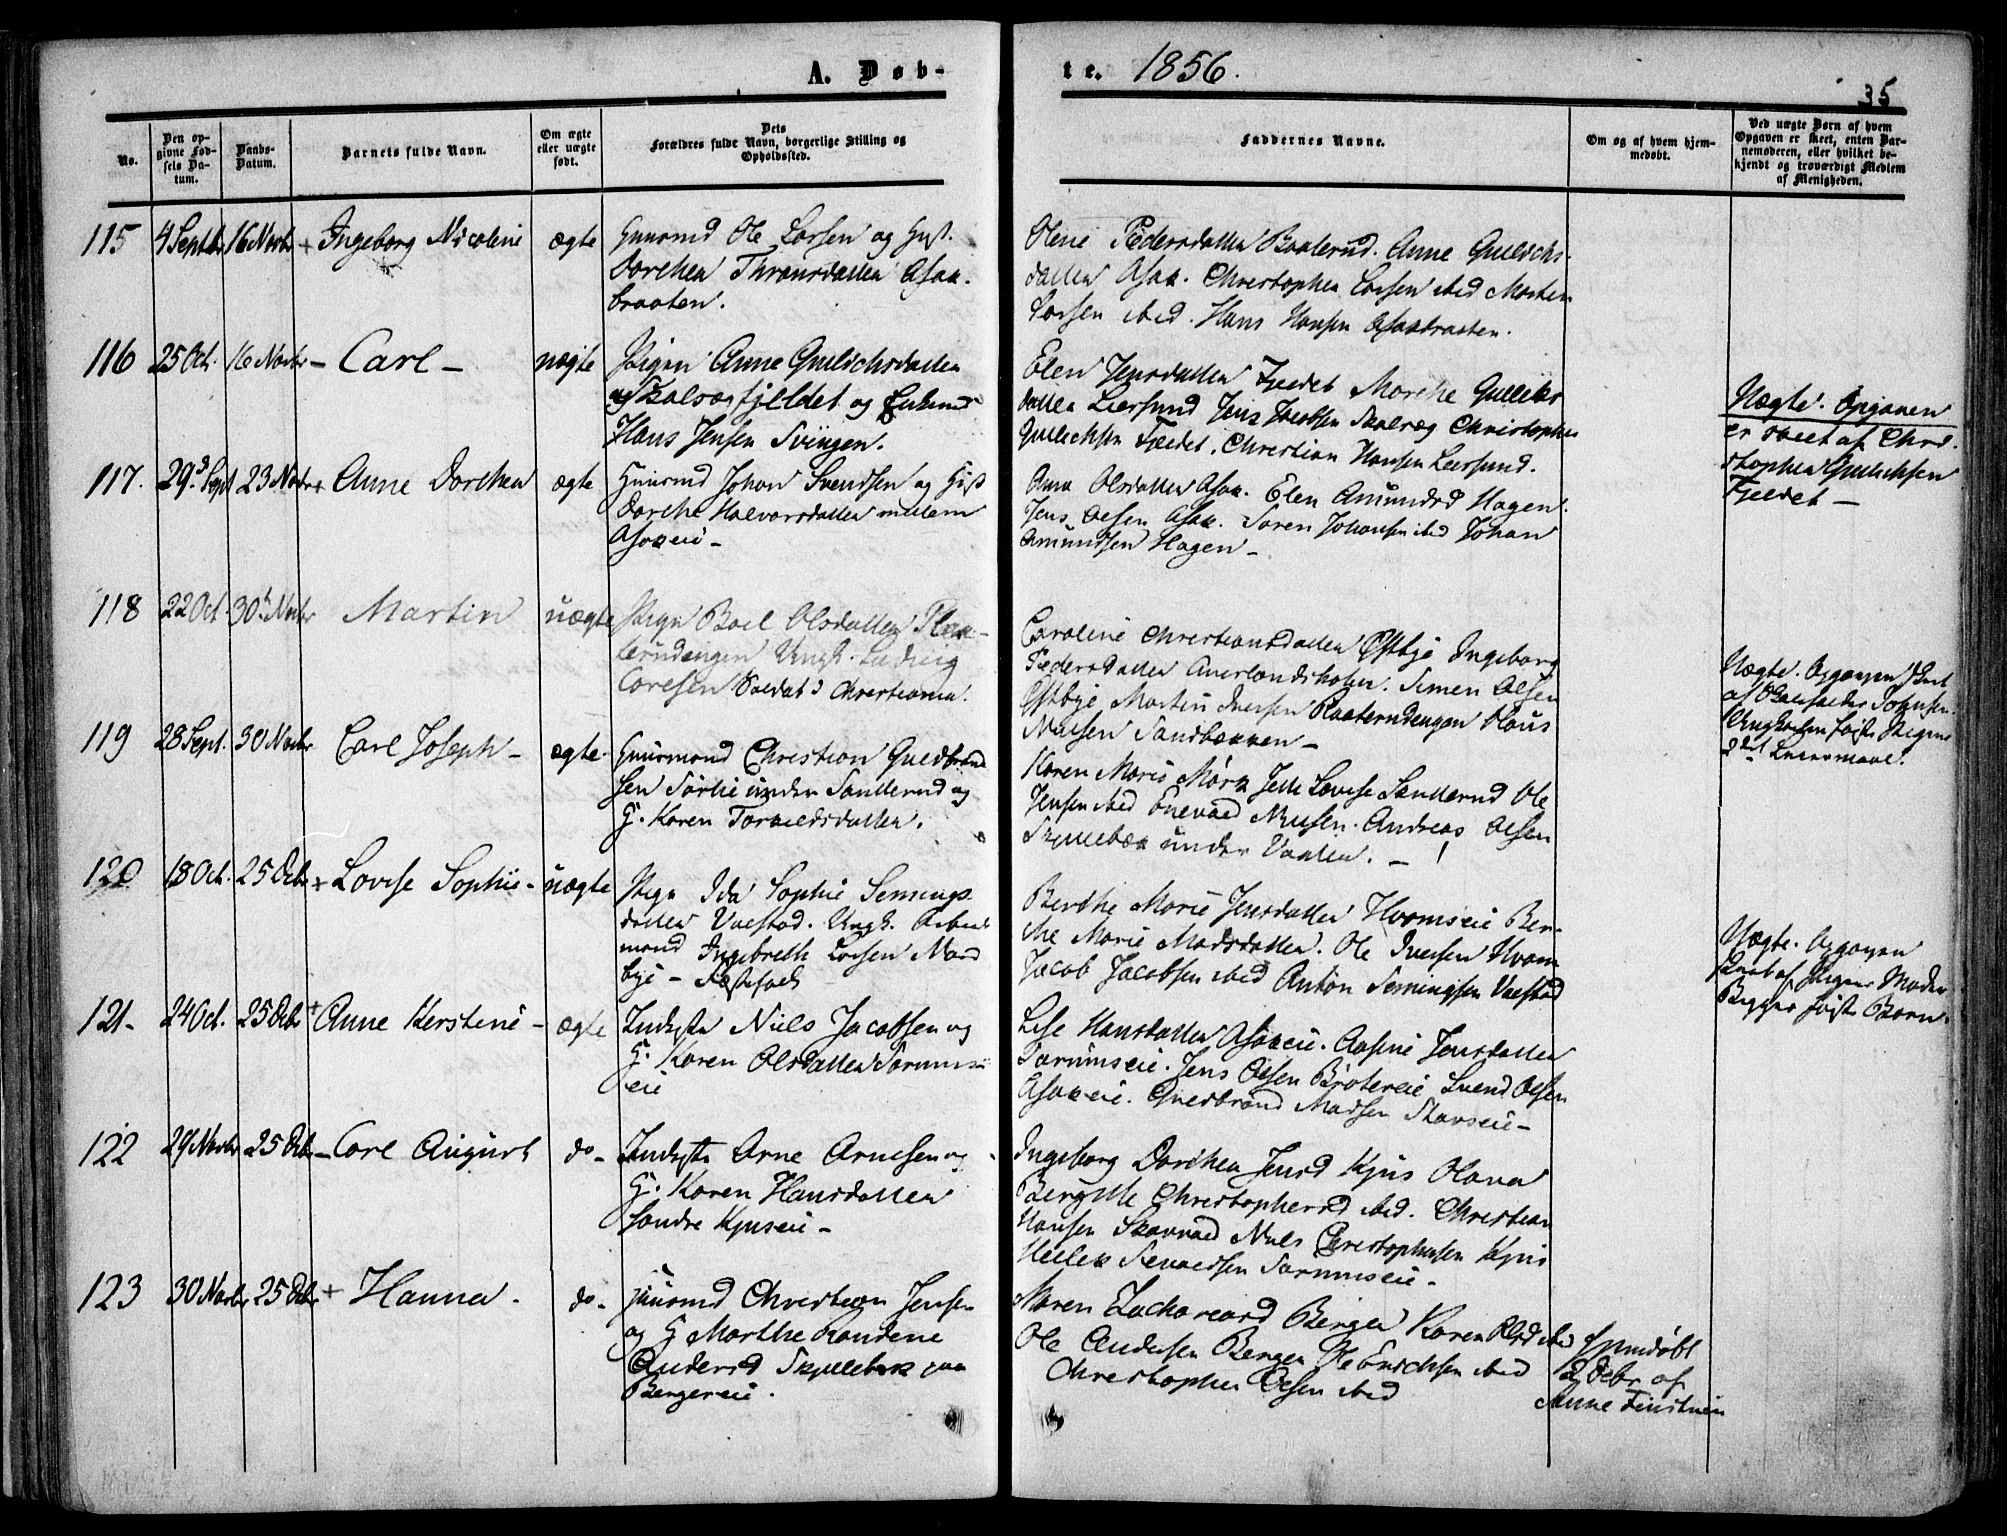 A. Døb-
te. 1856.
35
No.
Den op-
givne Fød-
sels Da-
tum.
Daabs-
Datum.
Barnets fulde Navn.
Om ægte
eller uægte
født.
Dets
Forældres fulde Navn, borgerlige Stilling og
Opholdssted.
Faddernes Navne.
Om og af hvem hjem-
medøbt.
Ved uægte Børn af hvem
Opgaven er skeet, enten Bar-
nemoderen, eller hvilket be-
kjendt og troværdigt Medlem
af Menigheden.
115 4 Septbr 16 Novbr + Ingeborg Nicoline ægte
Huusmd Ole Larsen og Hust.
Dorthea Thronsdatter Asak-
braaten.
Olene Pedersdatter Baaterud. Anne Gulichs-
datter Asak. Christopher Larsen ibid Morten
Larsen ibid. Hans Hansen Asakbraaten.
116 25 Oct. 16 Novbr - Carl - uægte
Pigen Anne Gulichsdatter
Skalsægfjeldet og Enkemd
Hans Jensen Svingen.
Elen Jensdatter Fjeldet Marthe Gulliks
datter Leersund Jens Jacobsen Skalræg Christopher
Gulichsen Fjeldet. Christian Hansen Leersund.
Uægte. Opgaven
er skeet af Chri-
stopher Gulichsen
Fjeldet -
117. 29 Sept 23 Novbr + Anne Dorthea ægte
Huusmd Johan Svendsen og Hust
Dorthe Halvorsdatter mellem
Asakeie -
Anna Olsdatter Asak. Elen Amundsd Hagen.
Jens Olsen Asak. Soren Johansen ibid Johan
Amundsen Hagen -
118 22 Oct. 30 Novbr Martin uægte
Pige Boel Olsdatter Plaa-
terudengen Ungk. Ludvig
Coresen Soldat i Christiania.
Caroline Christiansdatter Østbye Ingeborg
Pedersdatter Aurlandsholen. Simen Olsen
Østbye Martin Iversen Plaaterudengen Olaus
Nielsen Sandbakken -
119 28 Sept. 30 Novbr Carl Joseph - ægte.
Huusmand Christian Guldbrand
sen Sørlie under Sanderud og
H. Karen Torkildsdatter.
Karen Marie Mørk Lovise Sanderud Ole
Jensen ibid Enevold Nielsen. Andreas Olsen
Skjellebæk under Vaaler. -
120 18 Oct. 25 Debr + Lovise Sophie - uægte
Pige Ida Sophie Semings
datter Valstad. Ungk. Arbeids
mand Ingebreth Larsen Nord
bye -
Berthe Marie Jensdatter Hvamseie Ber-
the Marie Madsdatter. Ole Iversen Hvam
Jacob Jacobsen ibid Anton Semingsen Valstad
Uægte. Opgaven
skeet af Pigens Moder
Begges første Barn.
121- 24 Oct. 25 Debr + Anne Kirstine - ægte
Inderste Niels Jacobsen og
H. Karen Olsdatter Sørums-
eie
Lise Hansdatter Asakeie. Aasine Jensdatter
Sørumseie. Jens Olsen Brotereie Svend Olsen
Asakeie. Guldbrand Madsen Stavseie -
122 29 Novbr 25 Debr - Carl August do -
Inderste Arne Arnesen og
H. Karen Hansdatter
Søndre Kjuseie -
Ingeborg Dorthea Jensd Kjus Olava
Bergitte Christophersd ibid. Christian
Hansen Skovvold Niels Christophersen Kjus
123 30 Novbr 25 Debr + Hanna - do -
Huusmd Christian Jensen
og H Marthe Randine
Andersd Skjellebæk paa
Bergereie.
Maren Zachariasd Berger Karen Olsd ibid
Ole Andersen Berger Ole Erichsen ibid
Christopher Olsen ibid
Hjemdøbt
2 Debr af
Anne